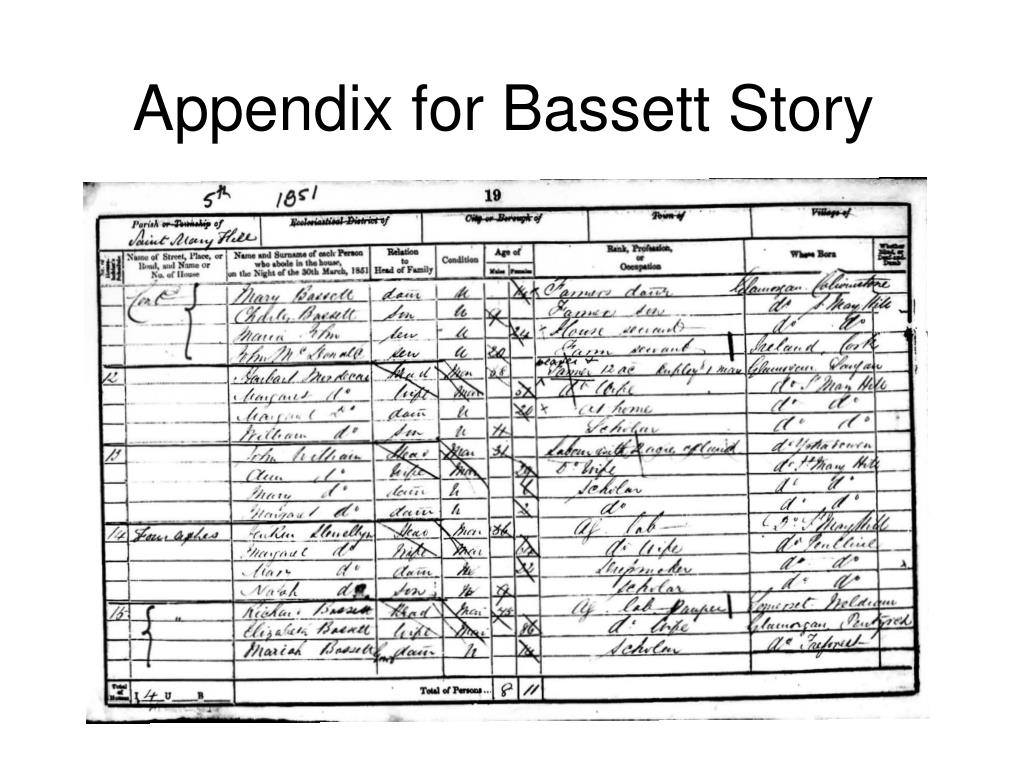 Appendix for Bassett Story
5th 1851 19
Parish or Township of Ecclesiastical District of City or Borough of Town of Village of
Saint Mary Hill
Name of Street, Place, or Road, and Name or No. of House Name and Surname of each Person who abode in the house, on the Night of the 30th March, 1851 Relation to Head of Family Condition Age of Males Females Rank, Profession, or Occupation Where Born Whether Blind, or Deaf-and-Dumb
Mary Bassett daur U 14 Farmers daur Glamorgan
Charles Bassett son U 9 Farmer son do St Mary Hill
Maria John ser U 24 House servant do do
John ser U 20 Farm servant Ireland, Cork
12 Head Mar 58 Farmer 12 ac Employs 1 man Glamorgan
Margaret do Wife Mar do Wife do St Mary Hill
Margaret Do daur U 20 at home do do
William do son U 11 Scholar do do
13 John William Head Mar 31 do
Ann do Wife Mar 29 Do Wife do St Mary Hill
Mary do daur U Scholar do do
Margaret do daur U do do do
14 Jenkin Llewellyn Head Mar Ag lab Do St Mary Hill
Margaret do Wife Mar do Wife do
Mary do daur 22 do do
Noah do son 9 Scholar do do
15 " Richard Bassett Head Mar Ag lab Pauper Somerset
Elizabeth Bassett Wife Mar do Wife Glamorgan
Mariah Bassett daur U 14 Scholar do Treforest
Total of Houses I 4 U B Total of Persons... 8 11